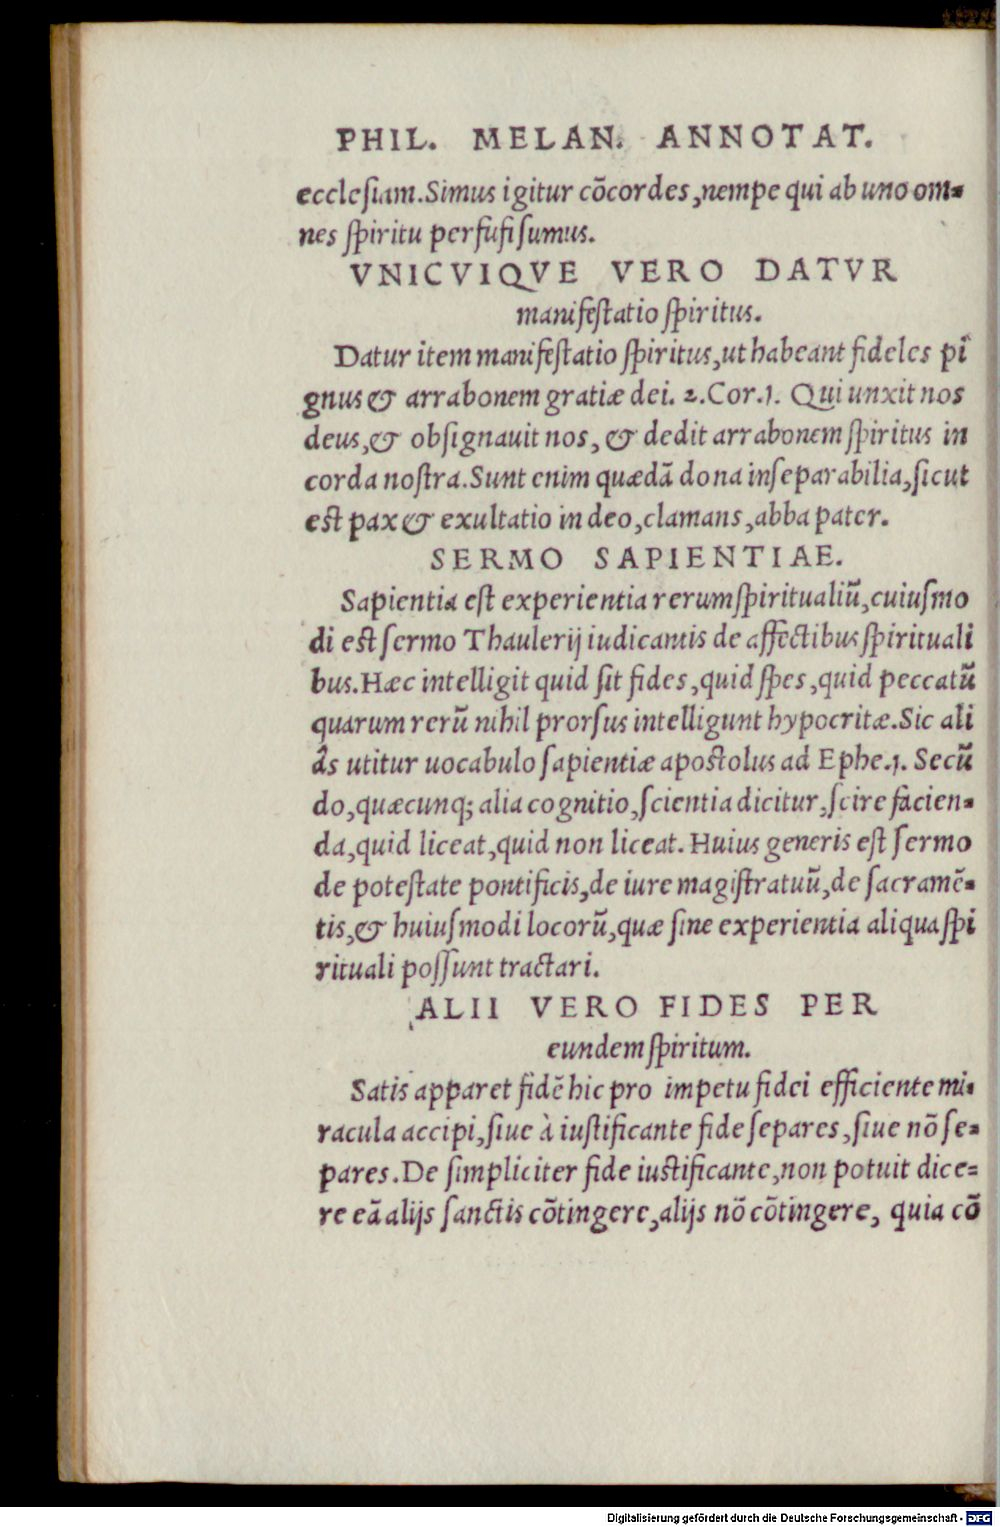 PHIL. MELAN. ANNOTAT.
ecclesiam. Simus igitur cõcordes, nempe qui ab uno om-
nes spiritu perfusi sumus.
VNICVIQVE VERO DATVR
manifestatio spiritus.
Datur item manifestatio spiritus, ut habeant fideles pi
gnus & arrabonem gratiæ dei. 2. Cor. 1. Qui unxit nos
deus, & obsignauit nos, & dedit arrabonem spiritus in
corda nostra. Sunt enim quædã dona inseparabilia, sicut
est pax & exultatio in deo, clamans, abba pater.
SERMO SAPIENTIAE.
Sapientia est experientia rerum spiritualiũ, cuiusmo
di est sermo Thaulerij iudicantis de affectibus spirituali
bus. Hæc intelligit quid sit fides, quid spes, quid peccatũ
quarum rerũ nihil prorsus intelligunt hypocritæ. Sic ali
ãs utitur uocabulo sapientiæ apostolus ad Ephe. 1. Secũ
do, quæcunq; alia cognitio, scientia dicitur, scire facien-
da, quid liceat, quid non liceat. Huius generis est sermo
de potestate pontificis, de iure magistratuũ, de sacramẽ-
tis, & huiusmodi locorũ, quæ sine experientia aliqua spi
rituali possunt tractari.
ALII VERO FIDES PER
eundem spiritum.
Satis apparet fidẽ hic pro impetu fidei efficiente mi-
racula accipi, siue à iustificante fide separes, siue nõ se-
pares. De simpliciter fide iustificante, non potuit dice-
re eã alijs sanctis cõtingere, alijs nõ cõtingere, quia cõ
Digitalisierung gefördert durch die Deutsche Forschungsgemeinschaft - DFG